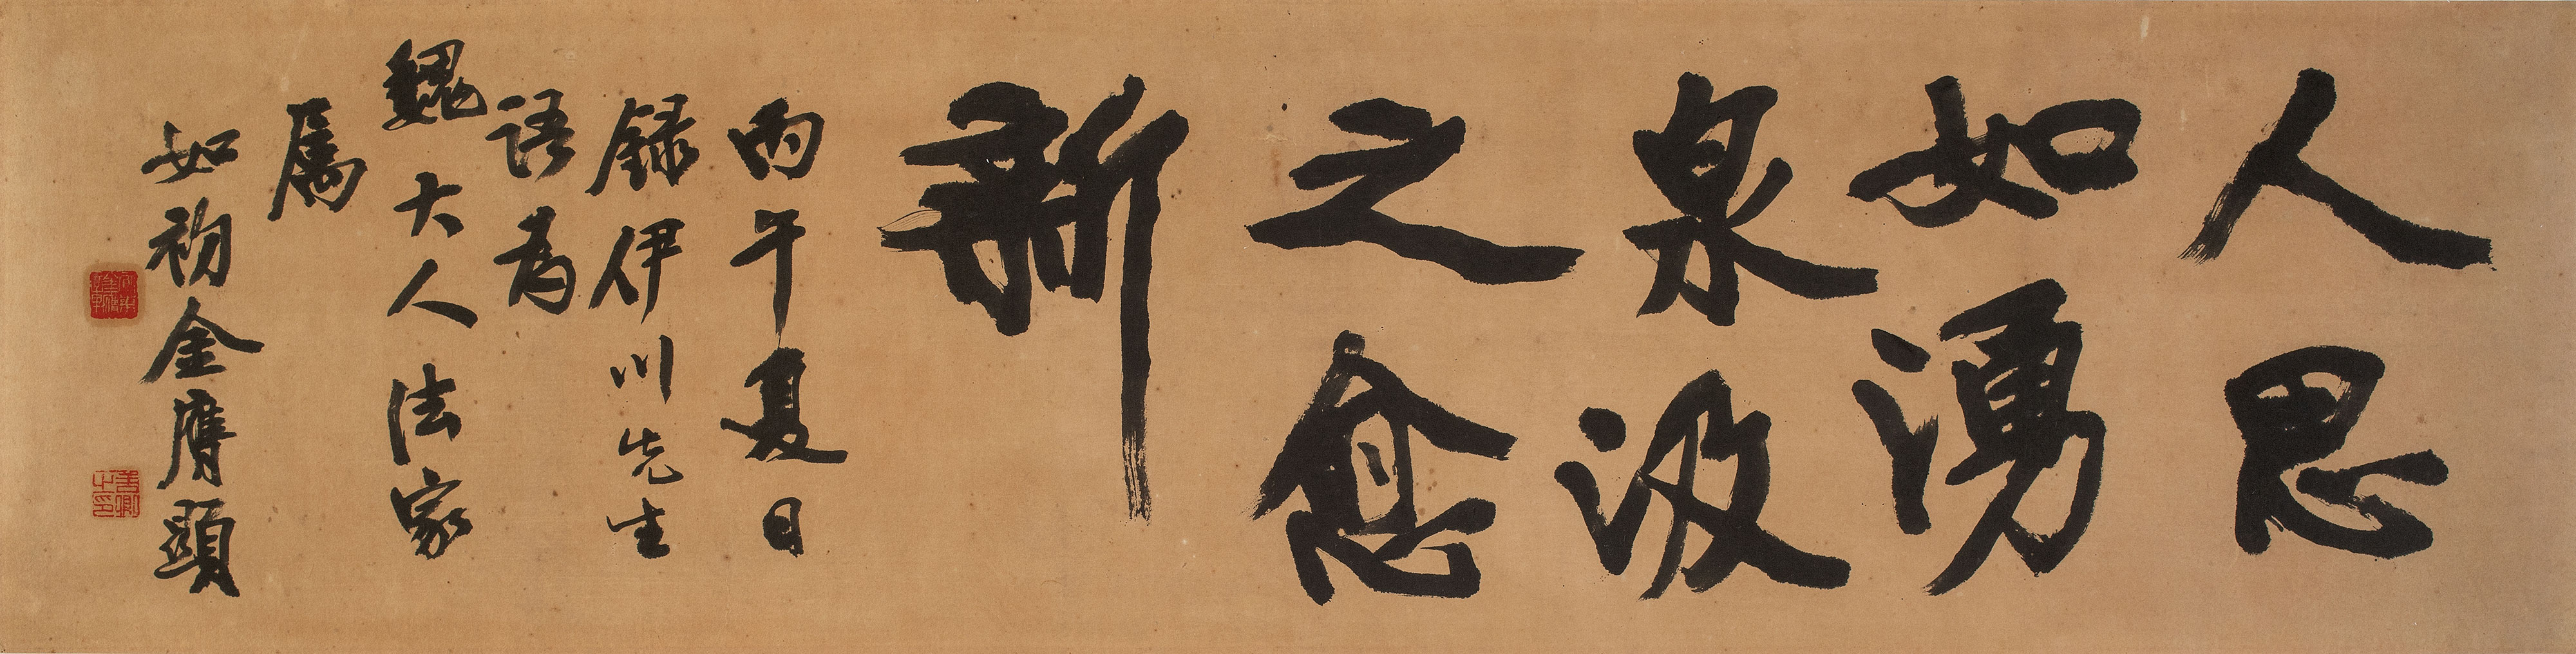 人思
如湧
泉汲
之愈
新
丙午夏日
録伊川先生
語為
魏大人法家
属
如初金膺顕